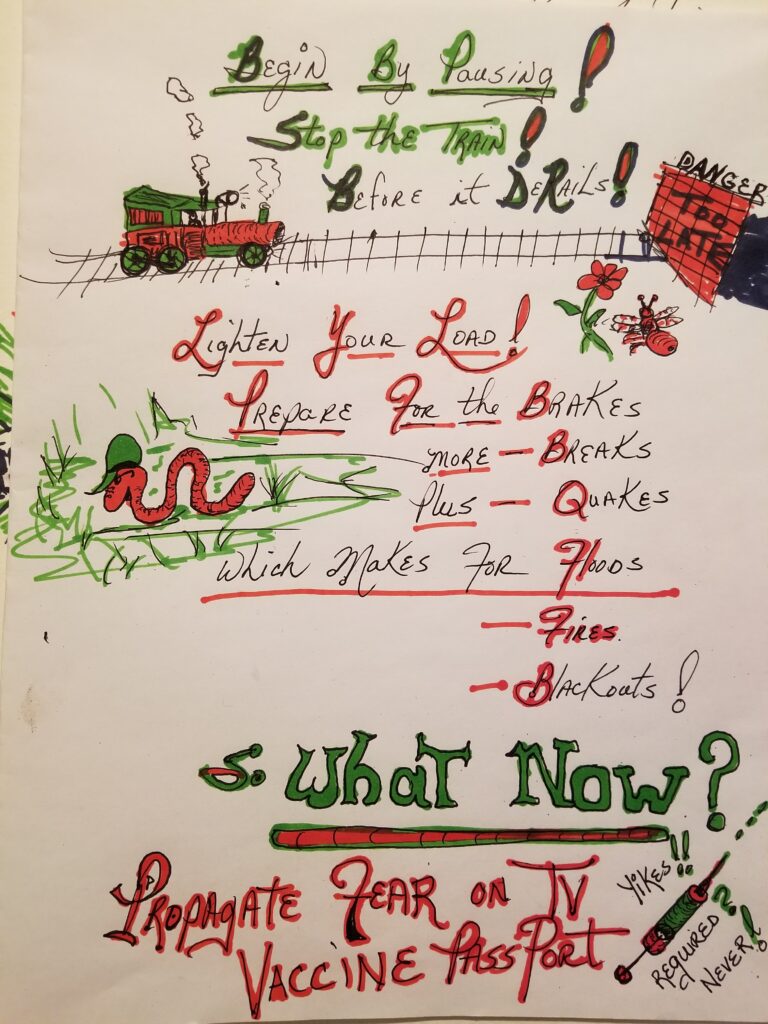 Begin By Pausing!
Stop the Train!
Before it DeRails!
DANGER
TOO
LATE
Lighten Your Load!
Prepare For the BRAKES
more — Breaks
Plus — Quakes
which Makes For Floods
— Fires.
— Blackouts!
What Now?
Propagate Fear on TV
Vaccine PassPort
Yikes!!
Required?
Never!